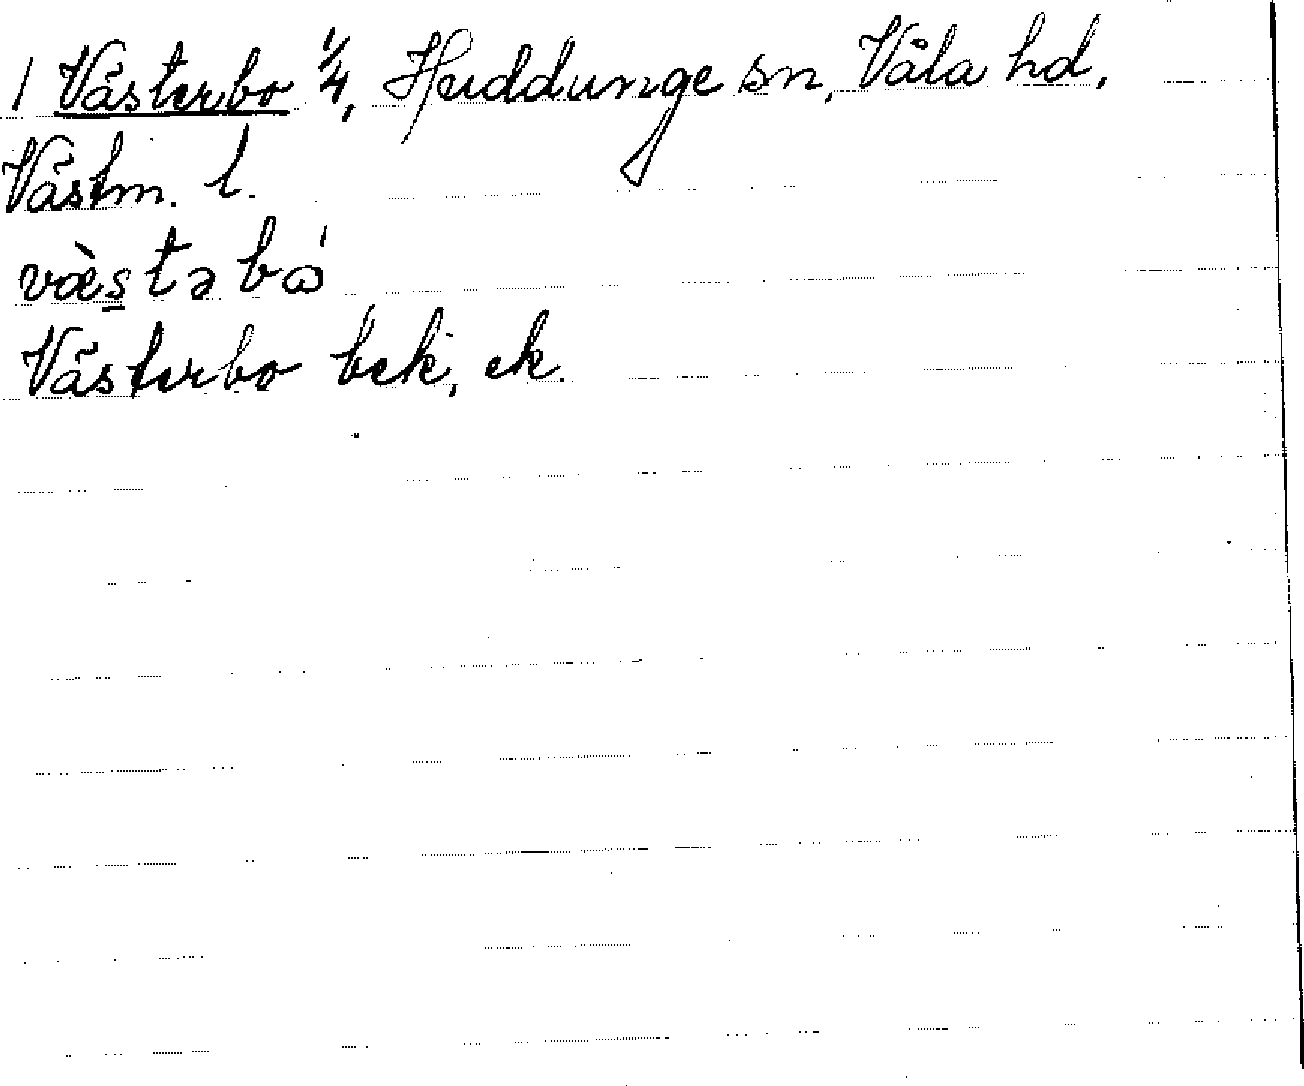 1 Västerbo 1/4, Huddunge sn, Våla hd,
Västm. l.
væ̀s̱təbɷ́
Västerbo bek, ek.